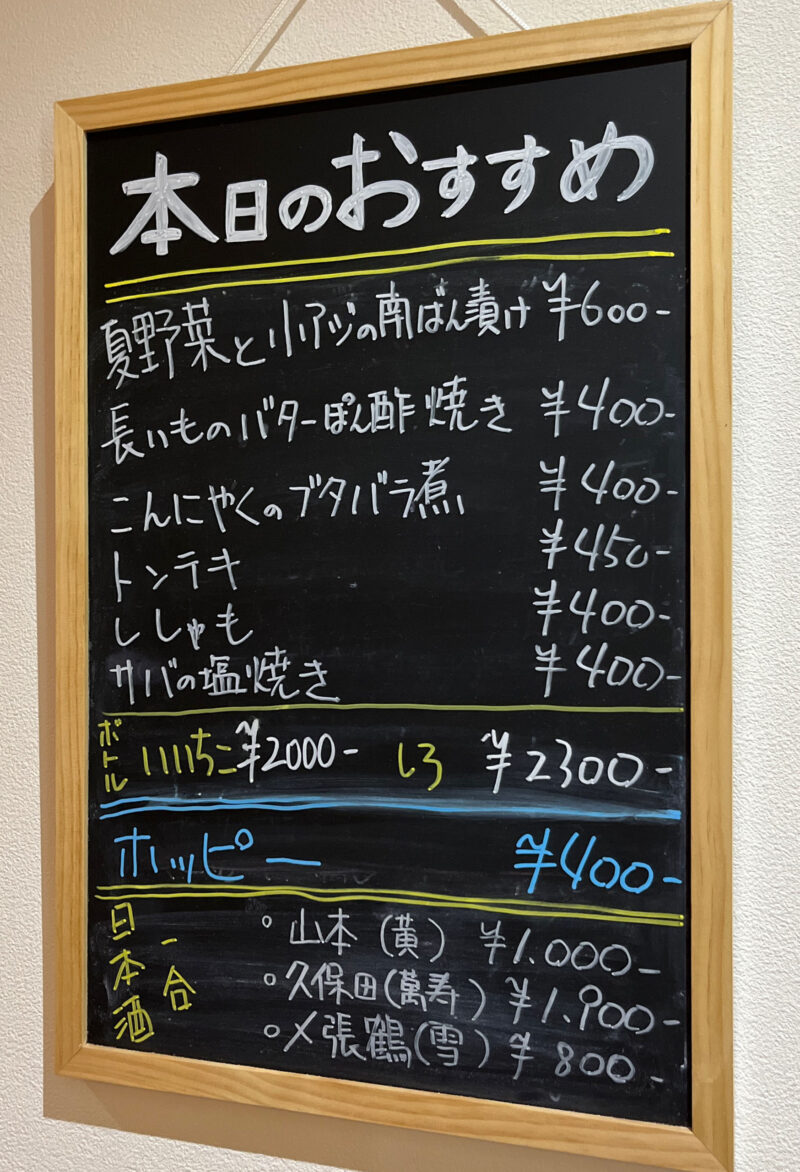 本日のおすすめ
夏野菜と小アジの南ばん漬け ¥600-
長いものバターぽん酢焼き ¥400-
こんにゃくのブタバラ煮 ¥400-
トンテキ ¥450-
ししゃも ¥400-
サバの塩焼き ¥400-
ボトル いいちこ ¥2000- しろ ¥2300-
ホッピー ¥400-
日本酒 一合
。山本(黄) ¥1.000-
。久保田(萬寿) ¥1.900-
。〆張鶴(雪) ¥800-